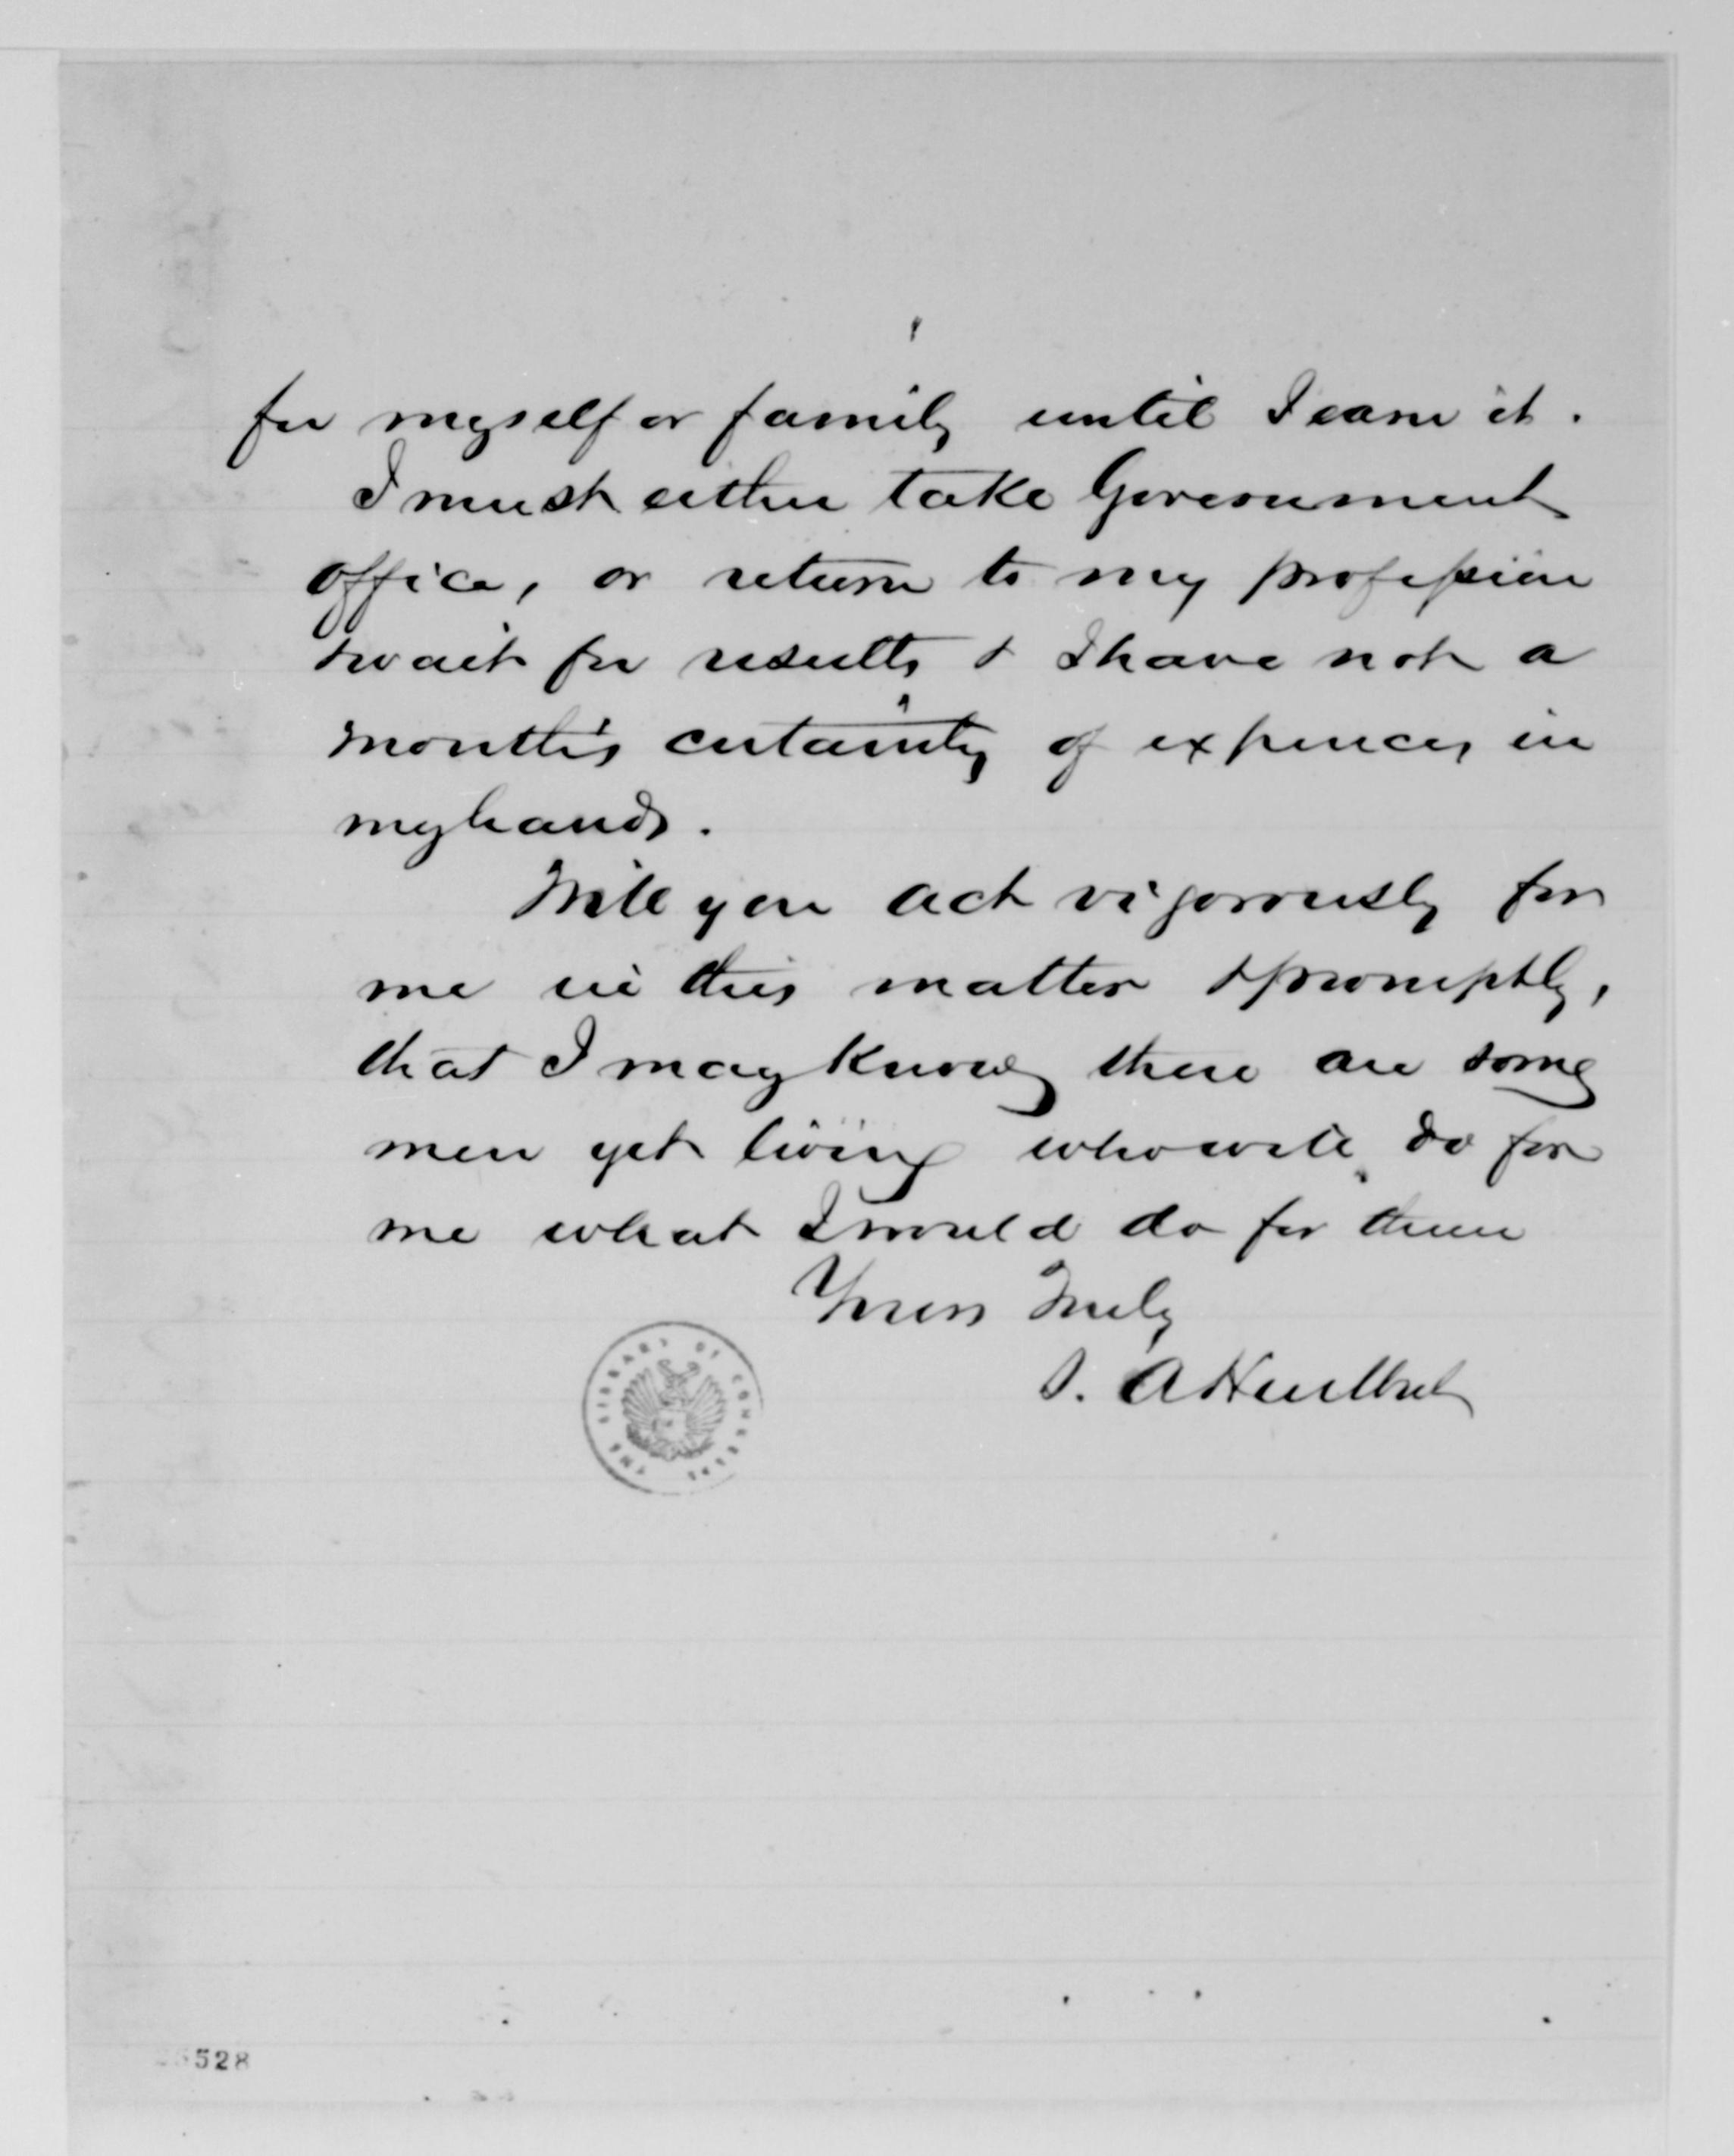 for myself or family until I earn it.
I must either take Government
office, or return to my profession
& wait for results & I have not a
month's certainty of expences in
my hands.
Will you act vigorously for
me in this matter & promptly,
that I may know there are some
men yet living who will do for
me what I would do for them
Yours Truly
S. A Hurlbut
THE LIBRARY OF CONGRESS
528